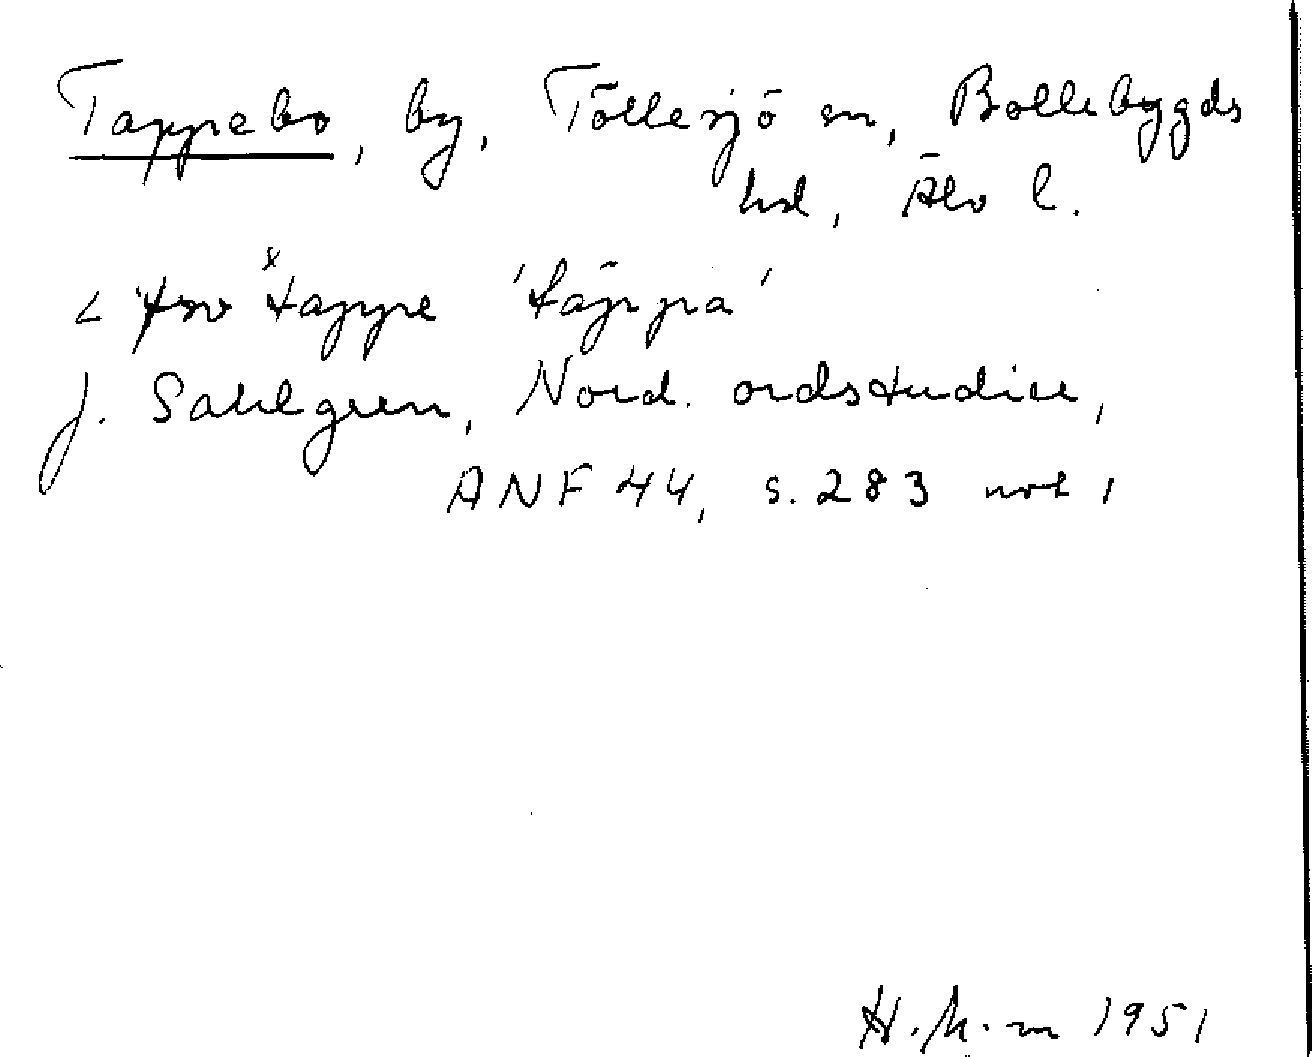 Tappebo, by, Töllesjö sn, Bollebygds
hd, Älv l.
< fsv *tappe 'täppa'
J. Sahlgren, Nord. ordstudier,
ANF 44, s. 283 not 1
1951